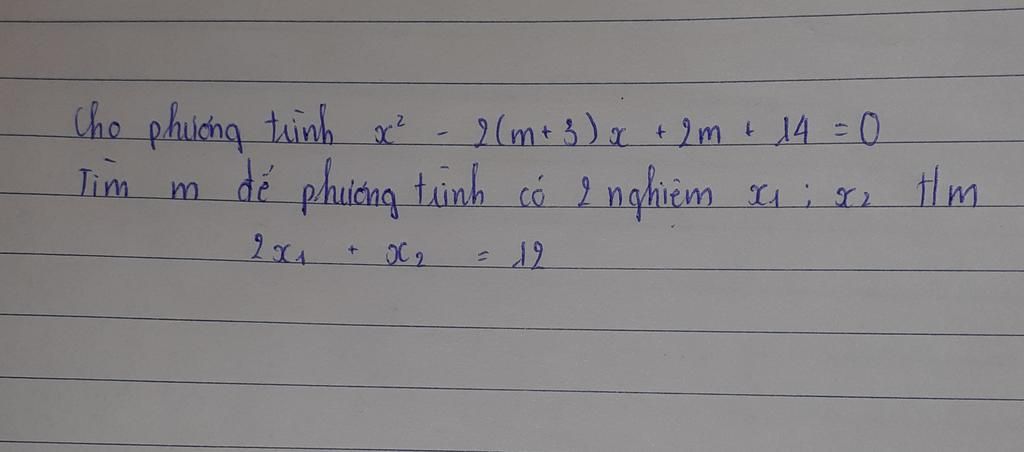 Cho phương trình x² - 2(m+3)x + 2m + 14 = 0
Tìm m để phương trình có 2 nghiệm x₁ ; x₂ t/m
2x₁ + x₂ = 12